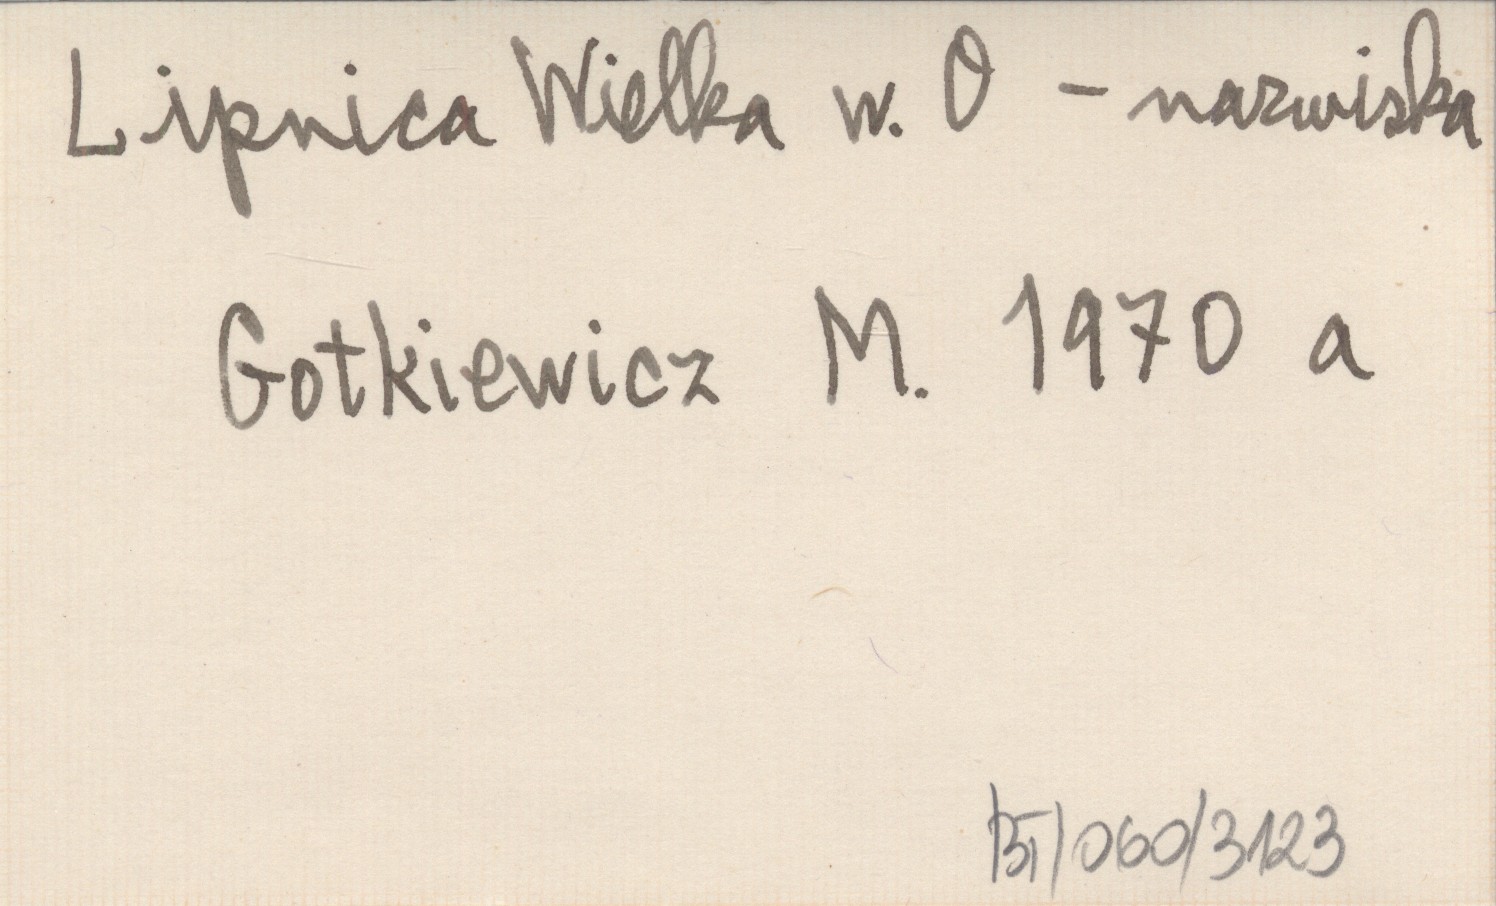 Lipnica Wielka w. O – nazwiska
Gotkiewicz M. 1970 a
/060/3123